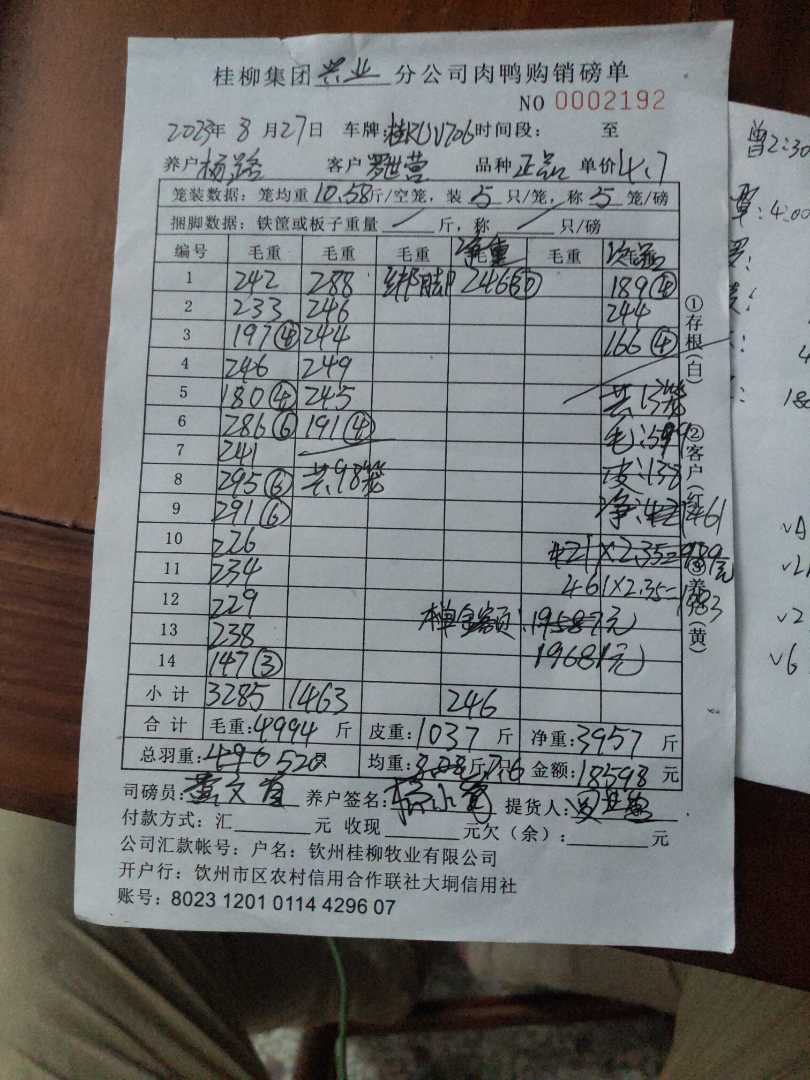 桂柳集团兴业分公司肉鸭购销磅单
NO 0002192
2023年8月27日 车牌: 时间段: 至
养户杨路 客户罗世营 品种正品 单价4.7
笼装数据: 笼均重10.58斤/空笼, 装5只/笼, 称5笼/磅
捆脚数据: 铁筐或板子重量 斤, 称 只/磅
编号 毛重 毛重 毛重 净重 毛重 次品
1 242 288 绑脚 246 189④
2 233 246 244
3 197④ 244 166④
4 246 249
5 180④ 245 共13笼
6 286⑥ 191④ 毛:599
7 241 皮:138
8 295⑥ 共98笼 净: 461
9 291⑥
10 226 421×2.35=989元
11 234 461×2.35=1083
12 229
13 238 本单金额:19587元
14 147③ 19681元
小计 3285 1463 246
合计 毛重:4994斤 皮重:1037斤 净重:3957斤
总羽重: 520只 均重: 7.6 金额:18598元
司磅员: 养户签名: 提货人:
付款方式: 汇 元 收现 元欠(余): 元
公司汇款帐号: 户名: 钦州桂柳牧业有限公司
开户行: 钦州市区农村信用合作联社大垌信用社
账号: 8023 1201 0114 4296 07
①存根(白)
②客户(红)
③养(黄)
曾2:30
4.00